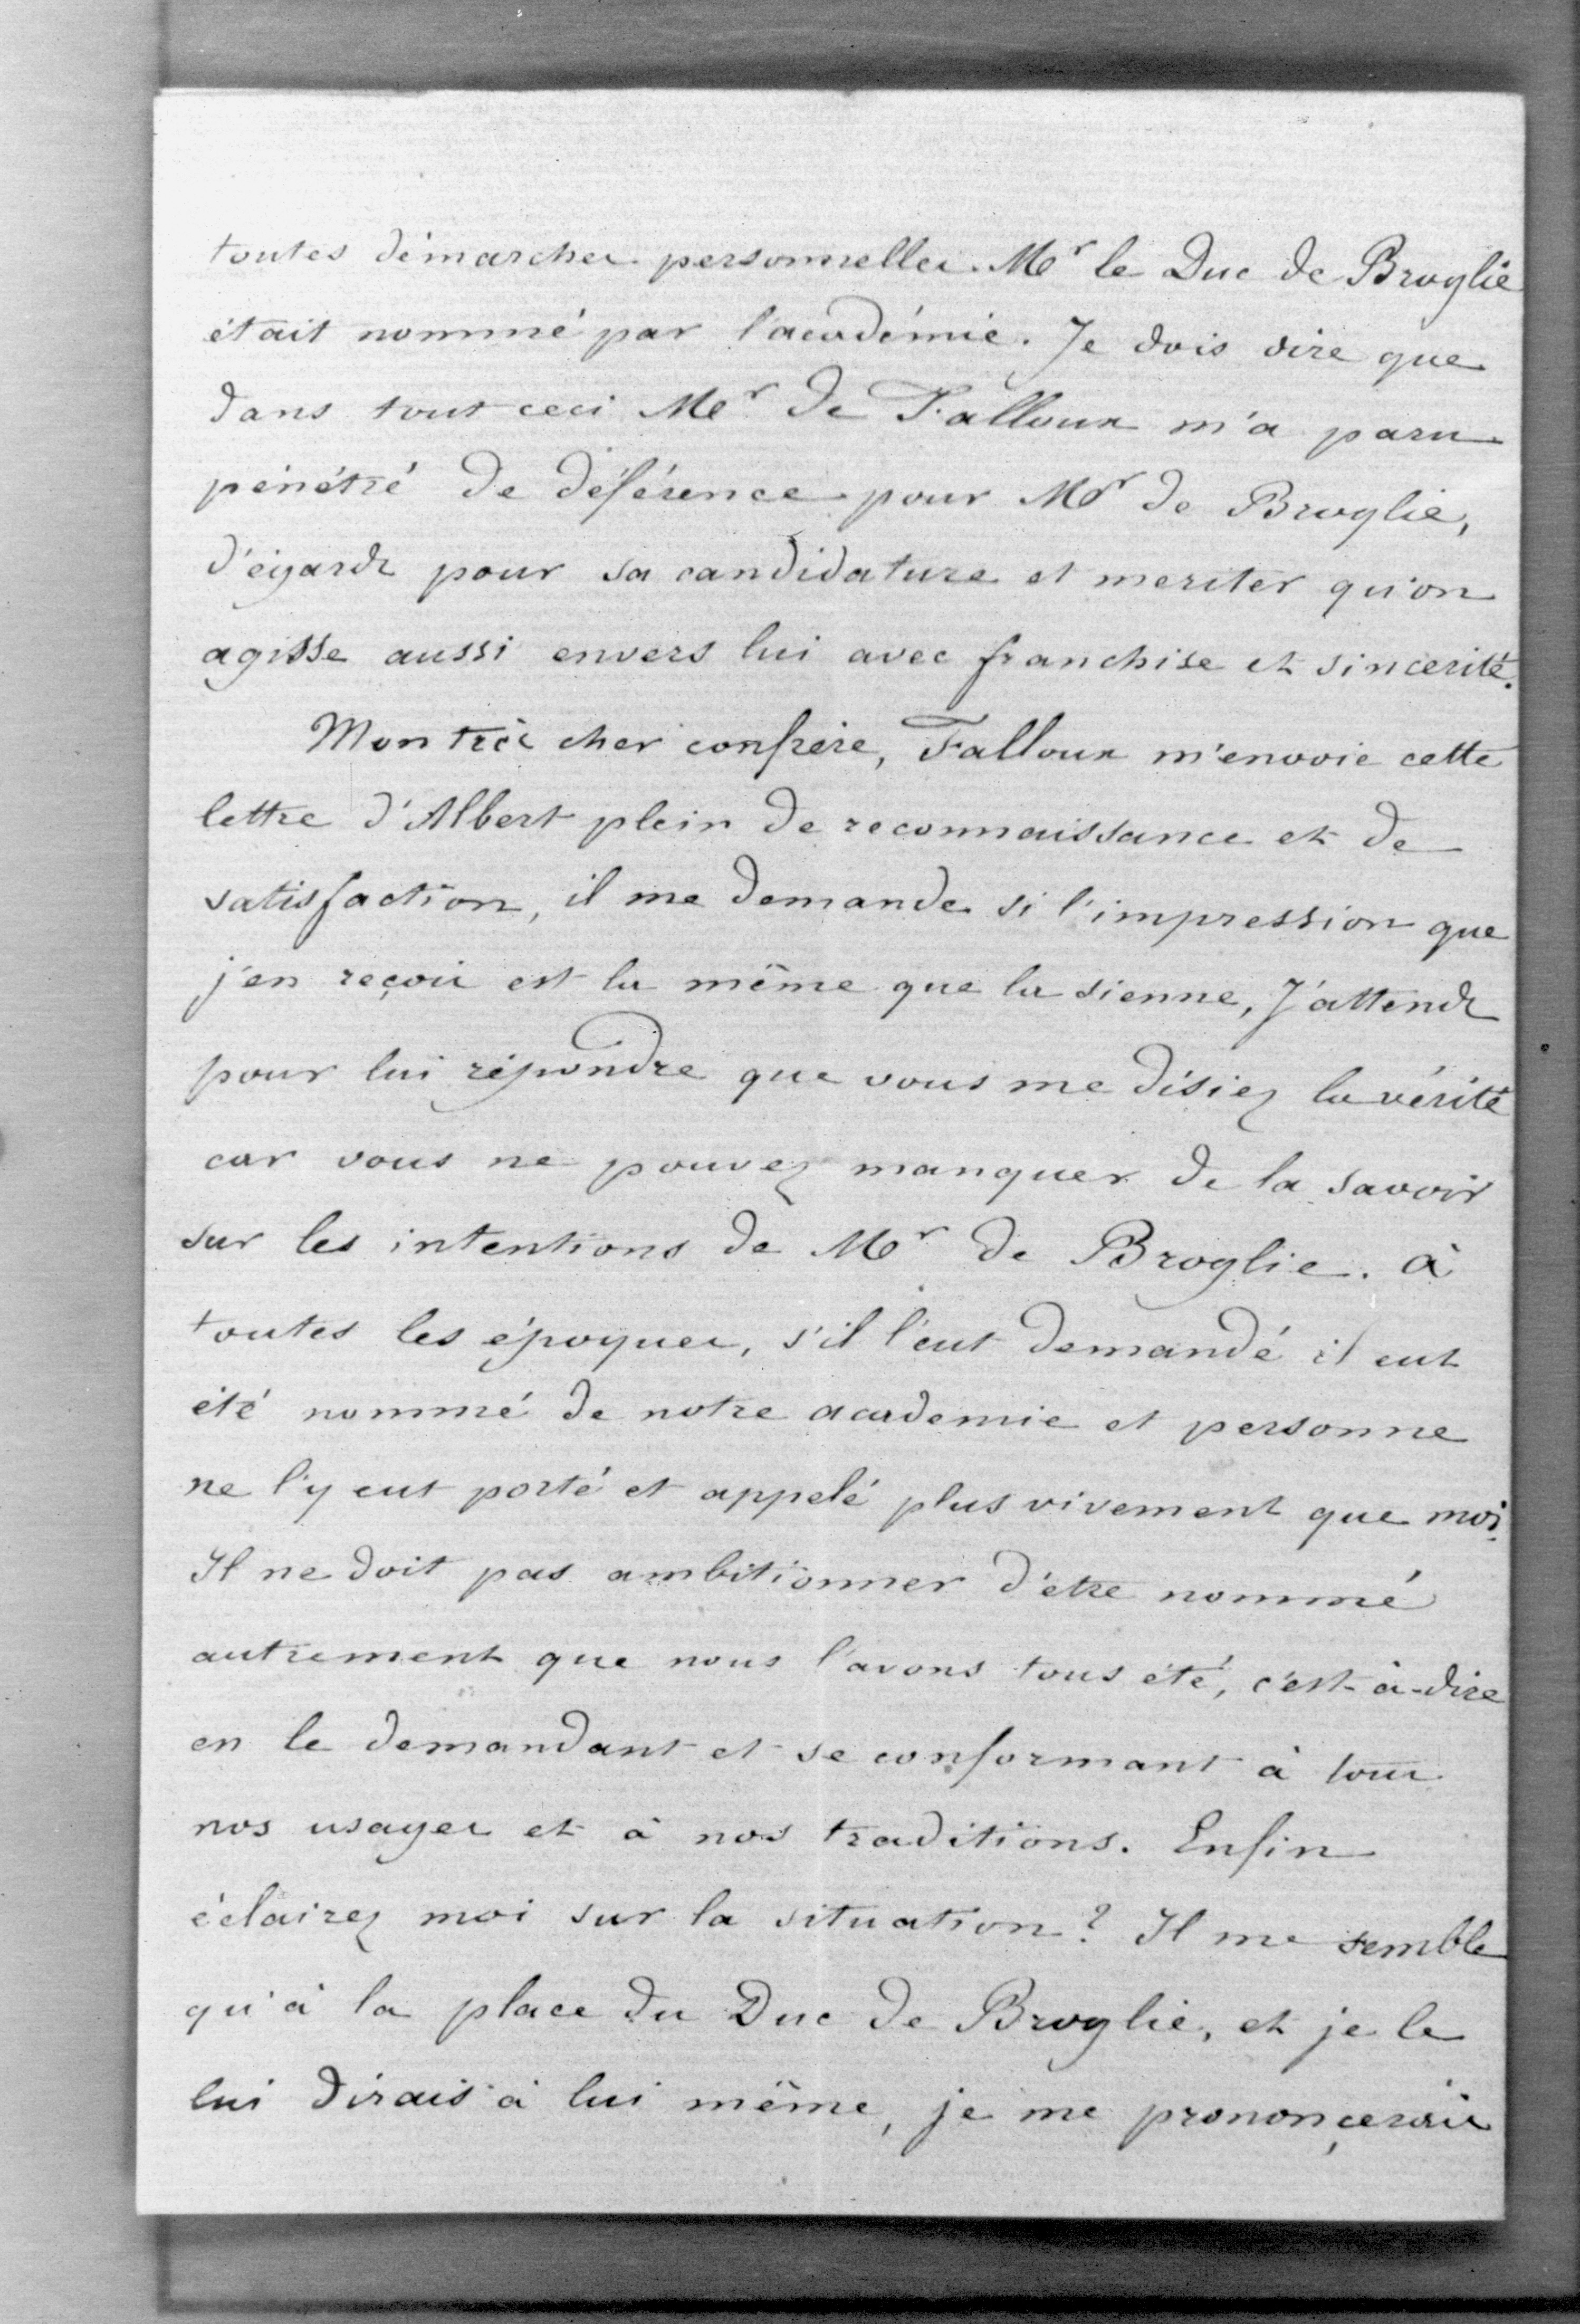 toutes démarches personnelles. Mr le Duc de Broglie
était nommé par l'académie. Je dois dire que
dans tout ceci Mr de Falloux m'a paru
pénétré de déférence pour Mr de Broglie,
d'égards pour sa candidature et meriter qu'on
agisse aussi envers lui avec franchise et sincerité.
Mon très cher confrère, Falloux m'envoie cette
lettre d'Albert plein de reconnaissance et de
satisfaction, il me demande si l'impression que
j'en reçois est la même que la sienne, J'attends
pour lui répondre que vous me disiez la vérité
car vous ne pouvez manquer de la savoir
sur les intentions de Mr de Broglie. à
toutes les époques, s'il l'eut demandé il eut
été nommé de notre academie et personne
ne l'y eut porté et appelé plus vivement que moi.
Il ne doit pas ambitionner d'etre nommé
autrement que nous l'avons tous été, c'est-à-dire
en le demandant et se conformant à tous
nos usages et à nos traditions. Enfin
éclairez moi sur la situation? Il me semble
qu'à la place du Duc de Broglie, et je le
lui dirais à lui même, je me prononçerais